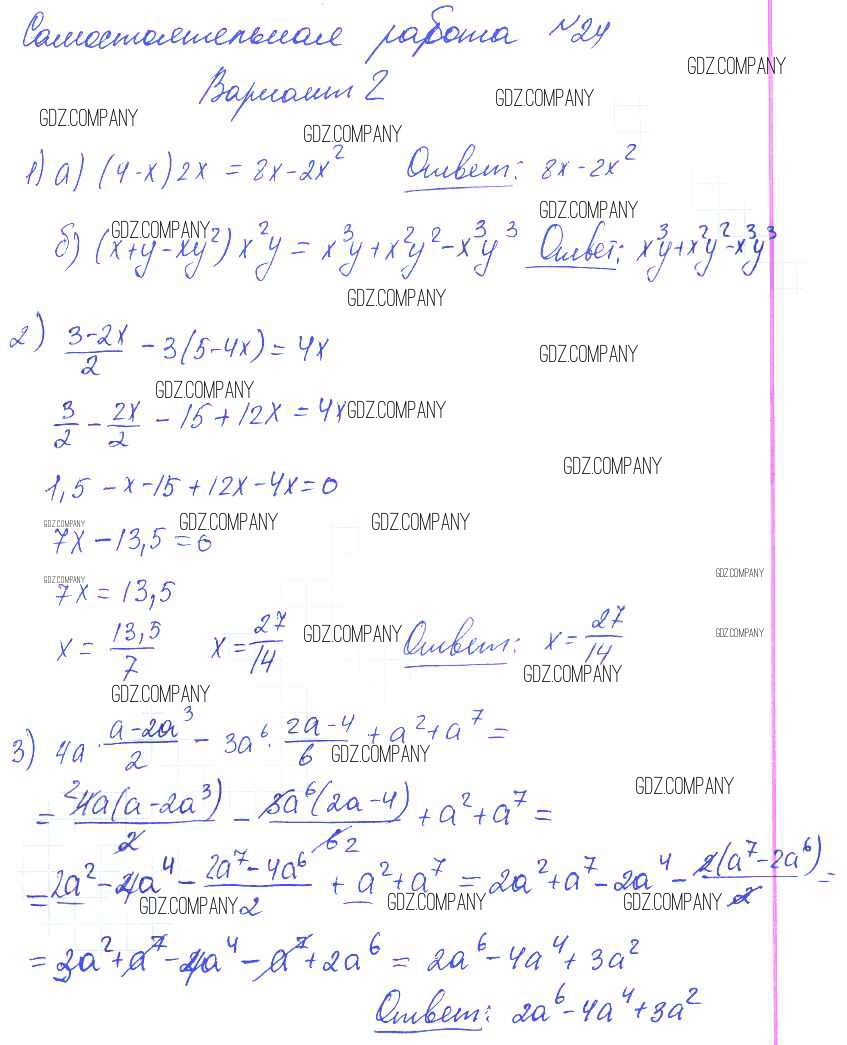 Самостоятельная работа №24
GDZ.COMPANY
Вариант 2
GDZ.COMPANY
GDZ.COMPANY
GDZ.COMPANY
1) а) (4-x)2x = 8x-2x² Ответ: 8x-2x²
GDZ.COMPANY
GDZ.COMPANY
б) (x+y-xy²)x²y = x³y+x²y²-x³y³ Ответ: x³y+x²y²-x³y³
GDZ.COMPANY
2) (3-2x)/2 - 3(5-4x) = 4x
GDZ.COMPANY
GDZ.COMPANY
3/2 - 2x/2 - 15 + 12x = 4x
GDZ.COMPANY
GDZ.COMPANY
1,5 - x - 15 + 12x - 4x = 0
GDZ.COMPANY GDZ.COMPANY GDZ.COMPANY
7x - 13,5 = 0
GDZ.COMPANY
GDZ.COMPANY
7x = 13,5
x = 13,5/7 x = 27/14 GDZ.COMPANY Ответ: x = 27/14
GDZ.COMPANY
GDZ.COMPANY
GDZ.COMPANY
3) 4a · (a-2a³)/2 - 3a⁶ · (2a-4)/6 + a² + a⁷ =
GDZ.COMPANY
GDZ.COMPANY
= ²4a(a-2a³)/2 - 3a⁶(2a-4)/6 2 + a² + a⁷ =
= 2a² - 4a⁴ - (2a⁷-4a⁶)/2 + a² + a⁷ = 2a² + a⁷ - 2a⁴ - 2(a⁷-2a⁶)/2 =
GDZ.COMPANY GDZ.COMPANY GDZ.COMPANY
= 3a² + a⁷ - 4a⁴ - a⁷ + 2a⁶ = 2a⁶ - 4a⁴ + 3a²
Ответ: 2a⁶ - 4a⁴ + 3a²